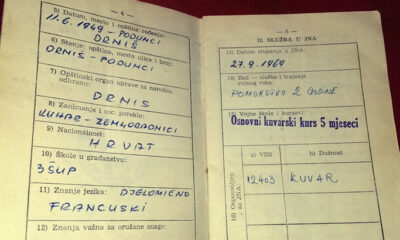 — 4 —
5) Datum, mesto i opština rođenja:
11.6.1949 - PODUMCI
DRNIŠ
6) Stanje: opština, mesto ulica i broj:
DRNIŠ - PODUMCI
7) Opštinski organ uprave za narodnu
odbranu:
DRNIŠ
8) Zanimanje i soc. poreklo:
KUHAR - ZEMLJORADNICI
9) Nacionalnost:
HRVAT
10) Škole u građanstvu:
3 ŠUP
11) Znanje jezika: DJELOMIČNO
FRANCUSKI
12) Znanja važna za oružane snage:
— 5 —
II. SLUŽBA U JNA
13) Datum stupanja u JNA:
27.9.1969
14) Rod — služba i trajanje
vojnog roka:
POMORSTVO 2 GODINE
15) Vojne škole i kursevi:
Osnovni kuvarski kurs 5 mjeseci
a) VES
b) Dužnost
16) Osposobljen
za JNA:
12403
KUVAR